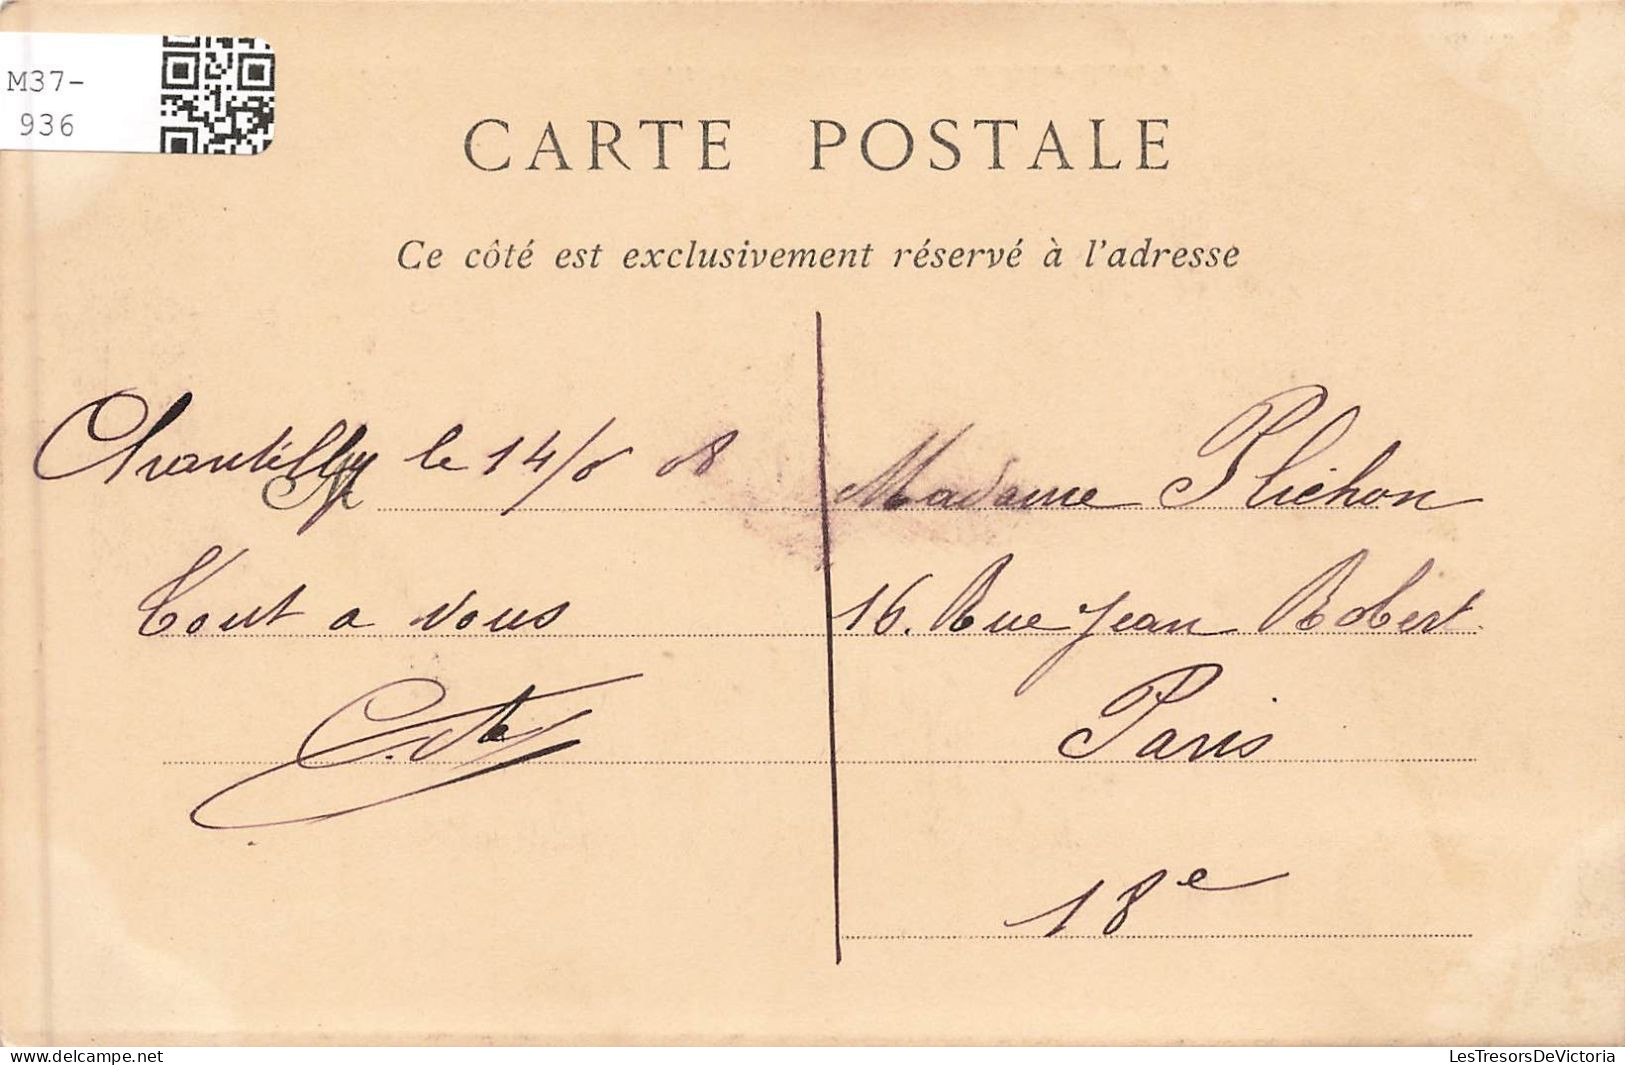 M37-
936
CARTE POSTALE
Ce côté est exclusivement réservé à l'adresse
Chantilly le 14/6 08
Tout a vous
Madame Plichon
16. Rue Jean Robert
Paris
18e
delcampe.net
LesTresorsDeVictoria